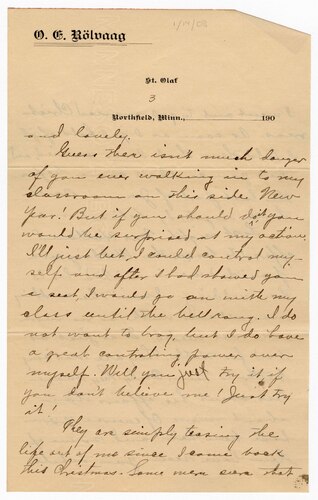 1/14/08
O. E. Rölvaag
St. Olaf
3
Northfield, Minn., 190
and lovely.
Guess ther isn't much danger
of you ever walking in to my
classroom on this side New
Year! But if you should do it you
would be surprised at my action.
I'll just bet, I could control my-
self and after I had showed you
a seat, I would go on with my
class until the bell rang. I do
not want to brag, but I do have
a great controling power over
myself. Well, you just try it if
you don't believe me! Just try
it!
They are simply teasing the
life out of me since I came back
this Christmas. Some were sure that